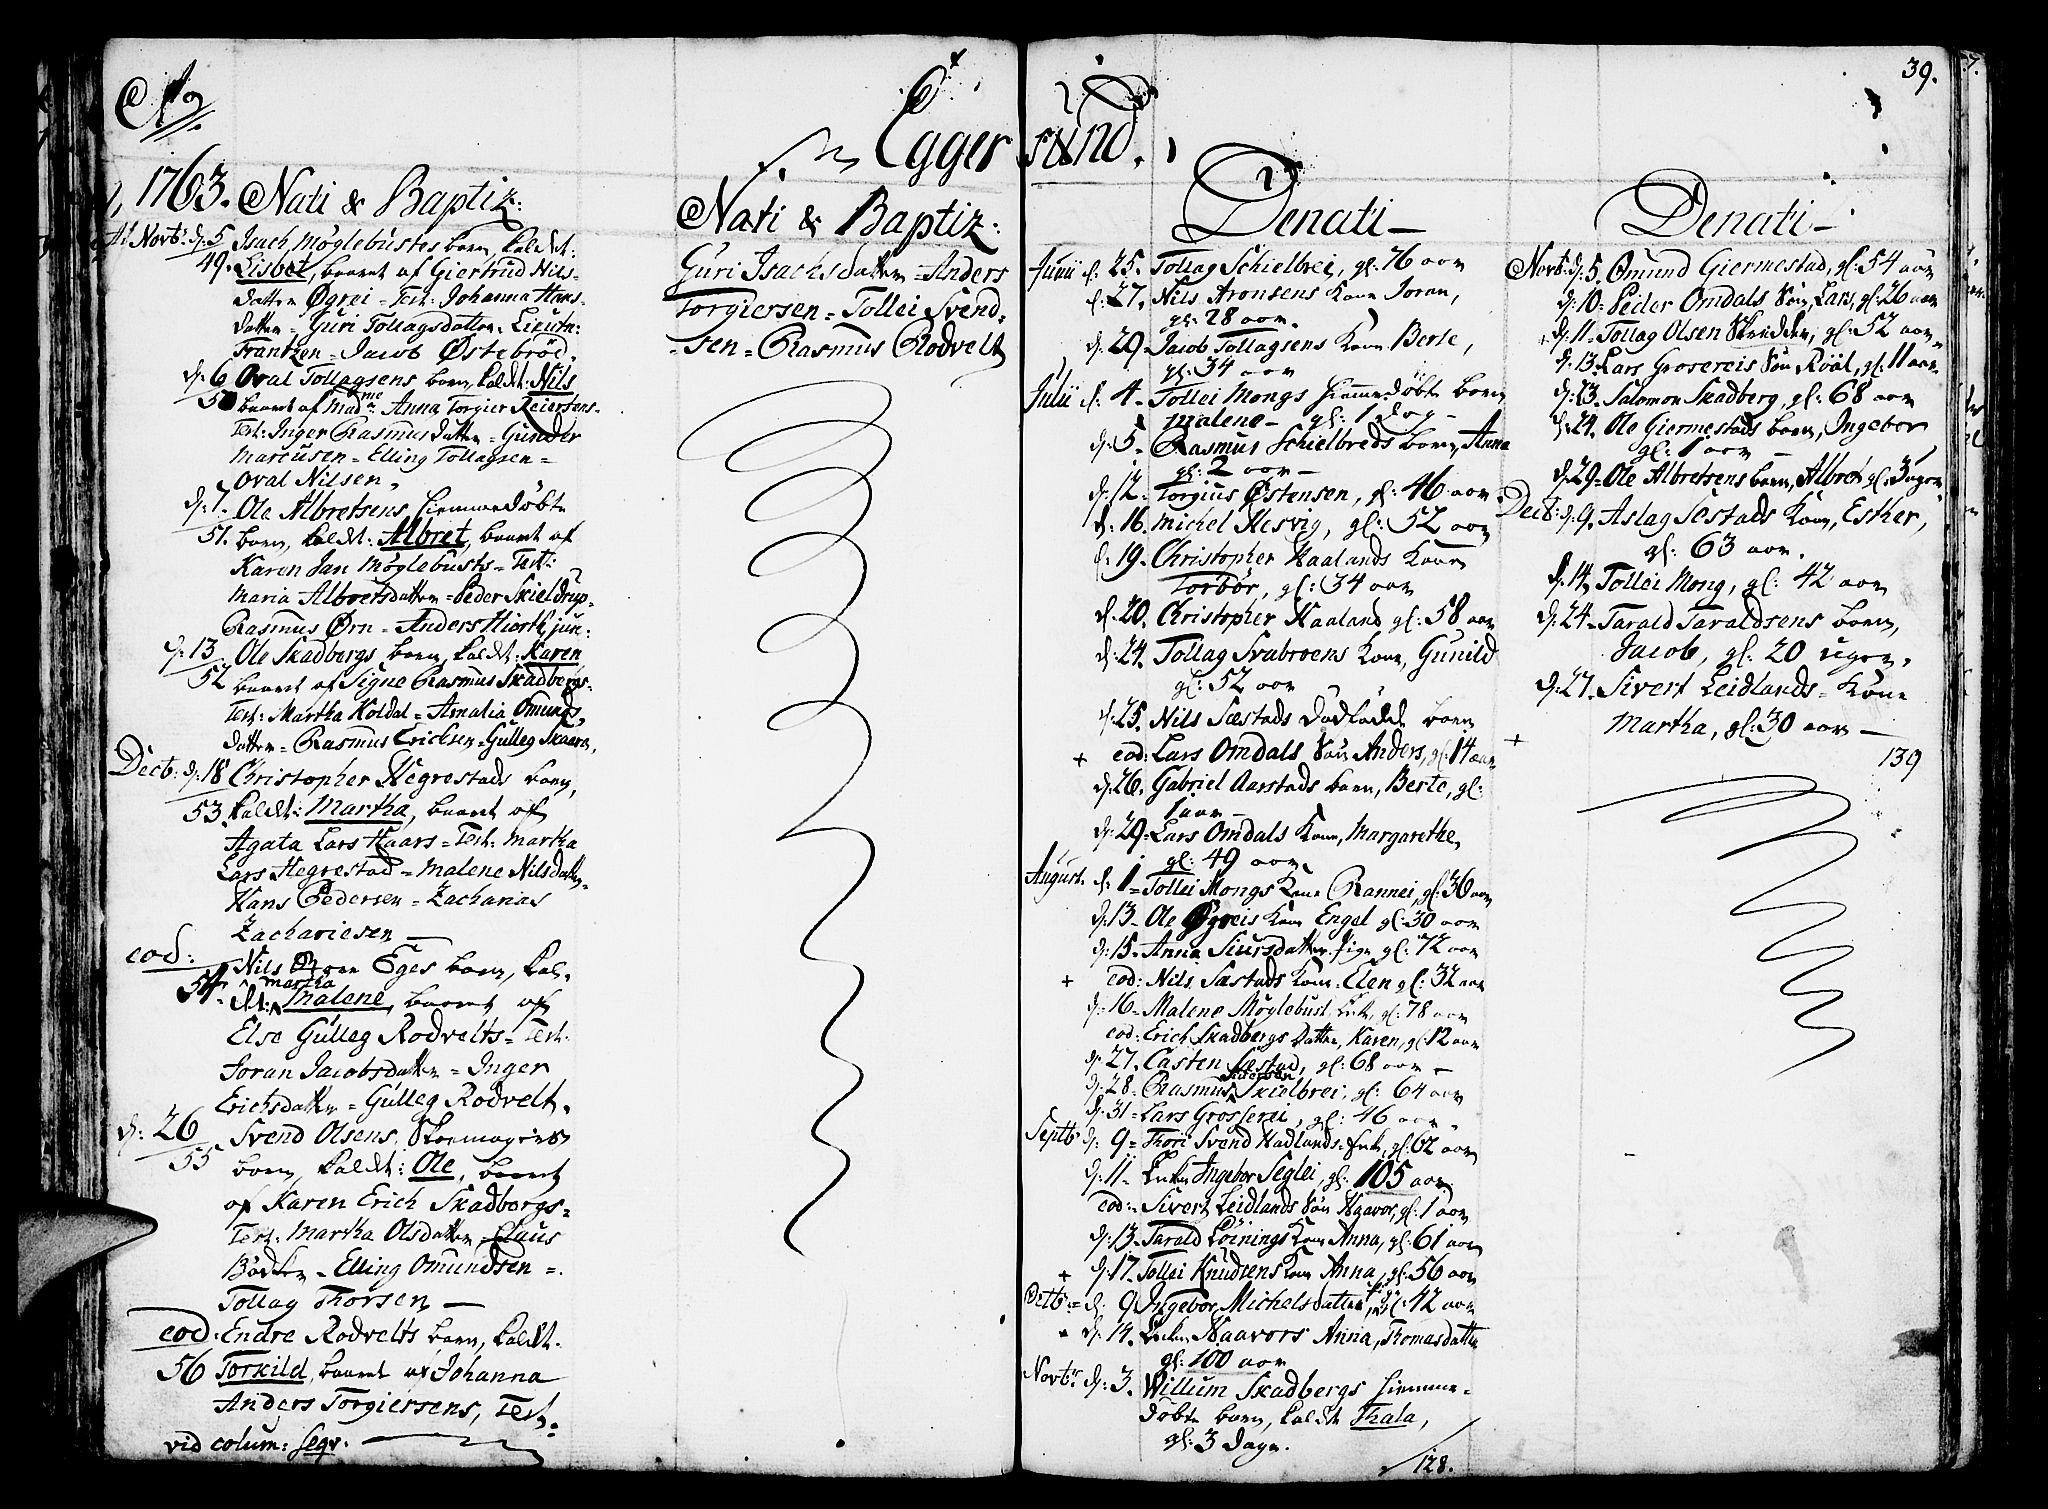 Ao
39.
Eggersund.
1763. Nati & Baptiz:
Novbr: d: 5 Isach Möglebustes barn, kaldt:
49. Lisbet, baaret af Giertrud Nils-
datter Øgrei = Test: Johanna Hans-
datter = Guri Tollagsdatter = Lieutn:
Frantzen = Jacob Østebröd.
d: 6 Oval Tollagsens barn, kaldt: Nils
50 baaret af Madme Anna Torgier Reiersens-
Test: Inger Rasmusdatter = Gunder
Marcusen = Elling Tollagsen =
Oval Nilsen.
d: 7. Ole Albretsens hiemmedöbte
51. barn, kaldt: Albret, baaret af
Karen Jan Möglebusts = Test:
Maria Albretsdatter = Peder Skieldrup =
Rasmus Ørn = Anders Hiorth jun:
d: 13 Ole Skadbergs barn, kaldt: Karen
52 baaret af Signe Rasmus Skadbergs-
Test: Martha Koldal = Amalia Omunds-
datter = Rasmus Ericksen = Gulleg Skaara,
Decb: d: 18 Christopher Hegrestads barn,
53. kaldt: Martha, baaret af
Agata Lars Haars = Test: Martha
Lars Hegrestad = Malene Nilsdatter =
Hans Pedersen = Zacharias
Zachariesen
eod: Nils Eges barn, kal-
54. dt: Martha Malene, baaret af
Else Gulleg Rodvelts = Test:
Joran Jacobsdatter = Inger
Erichsdatter = Gulleg Rodvelt.
d: 26 Svend Olsens Skoemagers
55 barn, kaldt: Ole, baaret
af Karen Erich Skadbergs =
Test: Martha Olsdatter = Claus
Bödker = Elling Omundsen =
Tollag Thorsen
eod: Endre Rodvelts barn, kaldt.
56 Torkild, baaret af Johanna
Anders Torgiersens, Test:
vid colum: seqv.
Nati & Baptiz:
Guri Isachsdatter = Anders
Torgiersen = Tollei Svend-
sen = Rasmus Rodvelt
Denati
Junii d: 25. Tollag Schielbrei, gl: 76 aar
d: 27. Nils Aronsens Kone Joran,
gl: 28 aar.
d: 29. Jacob Tollagsens Kone Berte,
gl: 34 aar
Julii d: 4. Tollei Mongs hiemmedöbte barn
Malene gl: 1 dag
d: 5. Rasmus Schielbreds barn, Anna
gl: 2 aar
d: 12. Torgius Østensen, gl: 46 aar
d: 16. Michel Hesvig, gl: 52 aar
d: 19. Christopher Haalands Kone
Torbör, gl: 34 aar
d: 20. Christopher Haaland gl: 58 aar
d: 24. Tollag Svabroens Kone, Gunild
gl: 52 aar
d: 25. Nils Sæstads dödfödde barn
+ eod: Lars Omdals Sön Anders, gl: 14 aar
d: 26. Gabriel Aarstads barn, Berte, gl:
1 aar
d: 29. Lars Omdals Kone, Margarethe,
gl: 49 aar.
August. d: 1 = Tollei Mongs Kone Rannei, gl: 36 aar
d: 13. Ole Øgreis Kone Engel gl: 30 aar
d: 15. Anna Siursdatter Pige gl: 72 aar
+ eod: Nils Sæstads Kone Elen gl: 32 aar
d: 16. Malene Möglebust, Enke, gl: 78 aar
eod: Erich Skadbergs Datter, Karen, gl: 12 aar
d: 27. Casten Sæstad, gl: 68 aar
d: 28. Rasmus Skielbrei, gl: 64 aar
d: 31 = Lars Grosserei, gl: 46 aar
Septb d: 9 = Thori Svend Hadlands Enke, gl: 62 aar
d: 11. Enken Ingebor Seglei, gl: 105 aar
eod: Sivert Leidlands Sön Haavor, gl: 1 aar
d: 13. Tarald Löinings Kone Anna, gl: 61 aar
+ d: 17. Tollei Knudsens Kone Anna, gl: 56 aar
Octb. = d: 9 Ingebor Michelsdatter, Pige gl: 42 aar
d: 14. Enken Haavors Anna, Thomasdatter
gl: 100 aar
Novbr d: 3. Willum Skadbergs hiemme-
döbte barn, kaldt Thala,
gl: 3 dage.
128.
Denati
Novb: d: 5. Omund Giermestad, gl: 54 aar
d: 10. Peder Omdals Sön, Lars, gl: 26 aar
+ d: 11. Tollag Olsen Skredder, gl: 52 aar
d: 13. Lars Grosereis Sön Röal, gl: 11 aar
d: 13. Salomon Skadberg, gl: 68 aar
d: 24. Ole Giermestads barn, Ingebor
gl: 1 aar
d: 29. Ole Albretsens barn, Albret gl: 3 uger
Decb: d: 9. Aslag Sæstads Kone, Esther,
gl: 63 aar.
d: 14. Tollei Mong, gl: 42 aar
d: 24. Tarald Taraldsens barn,
Jacob, gl: 20 uger.
d: 27. Sivert Leidlands Kone
+ Martha, gl: 30 aar
139